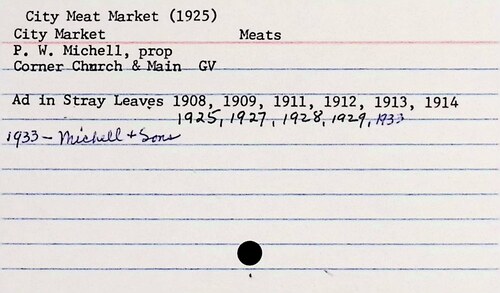 City Meat Market (1925)
City Market Meats
P. W. Michell, prop
Corner Church & Main GV
Ad in Stray Leaves 1908, 1909, 1911, 1912, 1913, 1914
1925, 1927, 1928, 1929, 1933
1933 - Michell + Sons